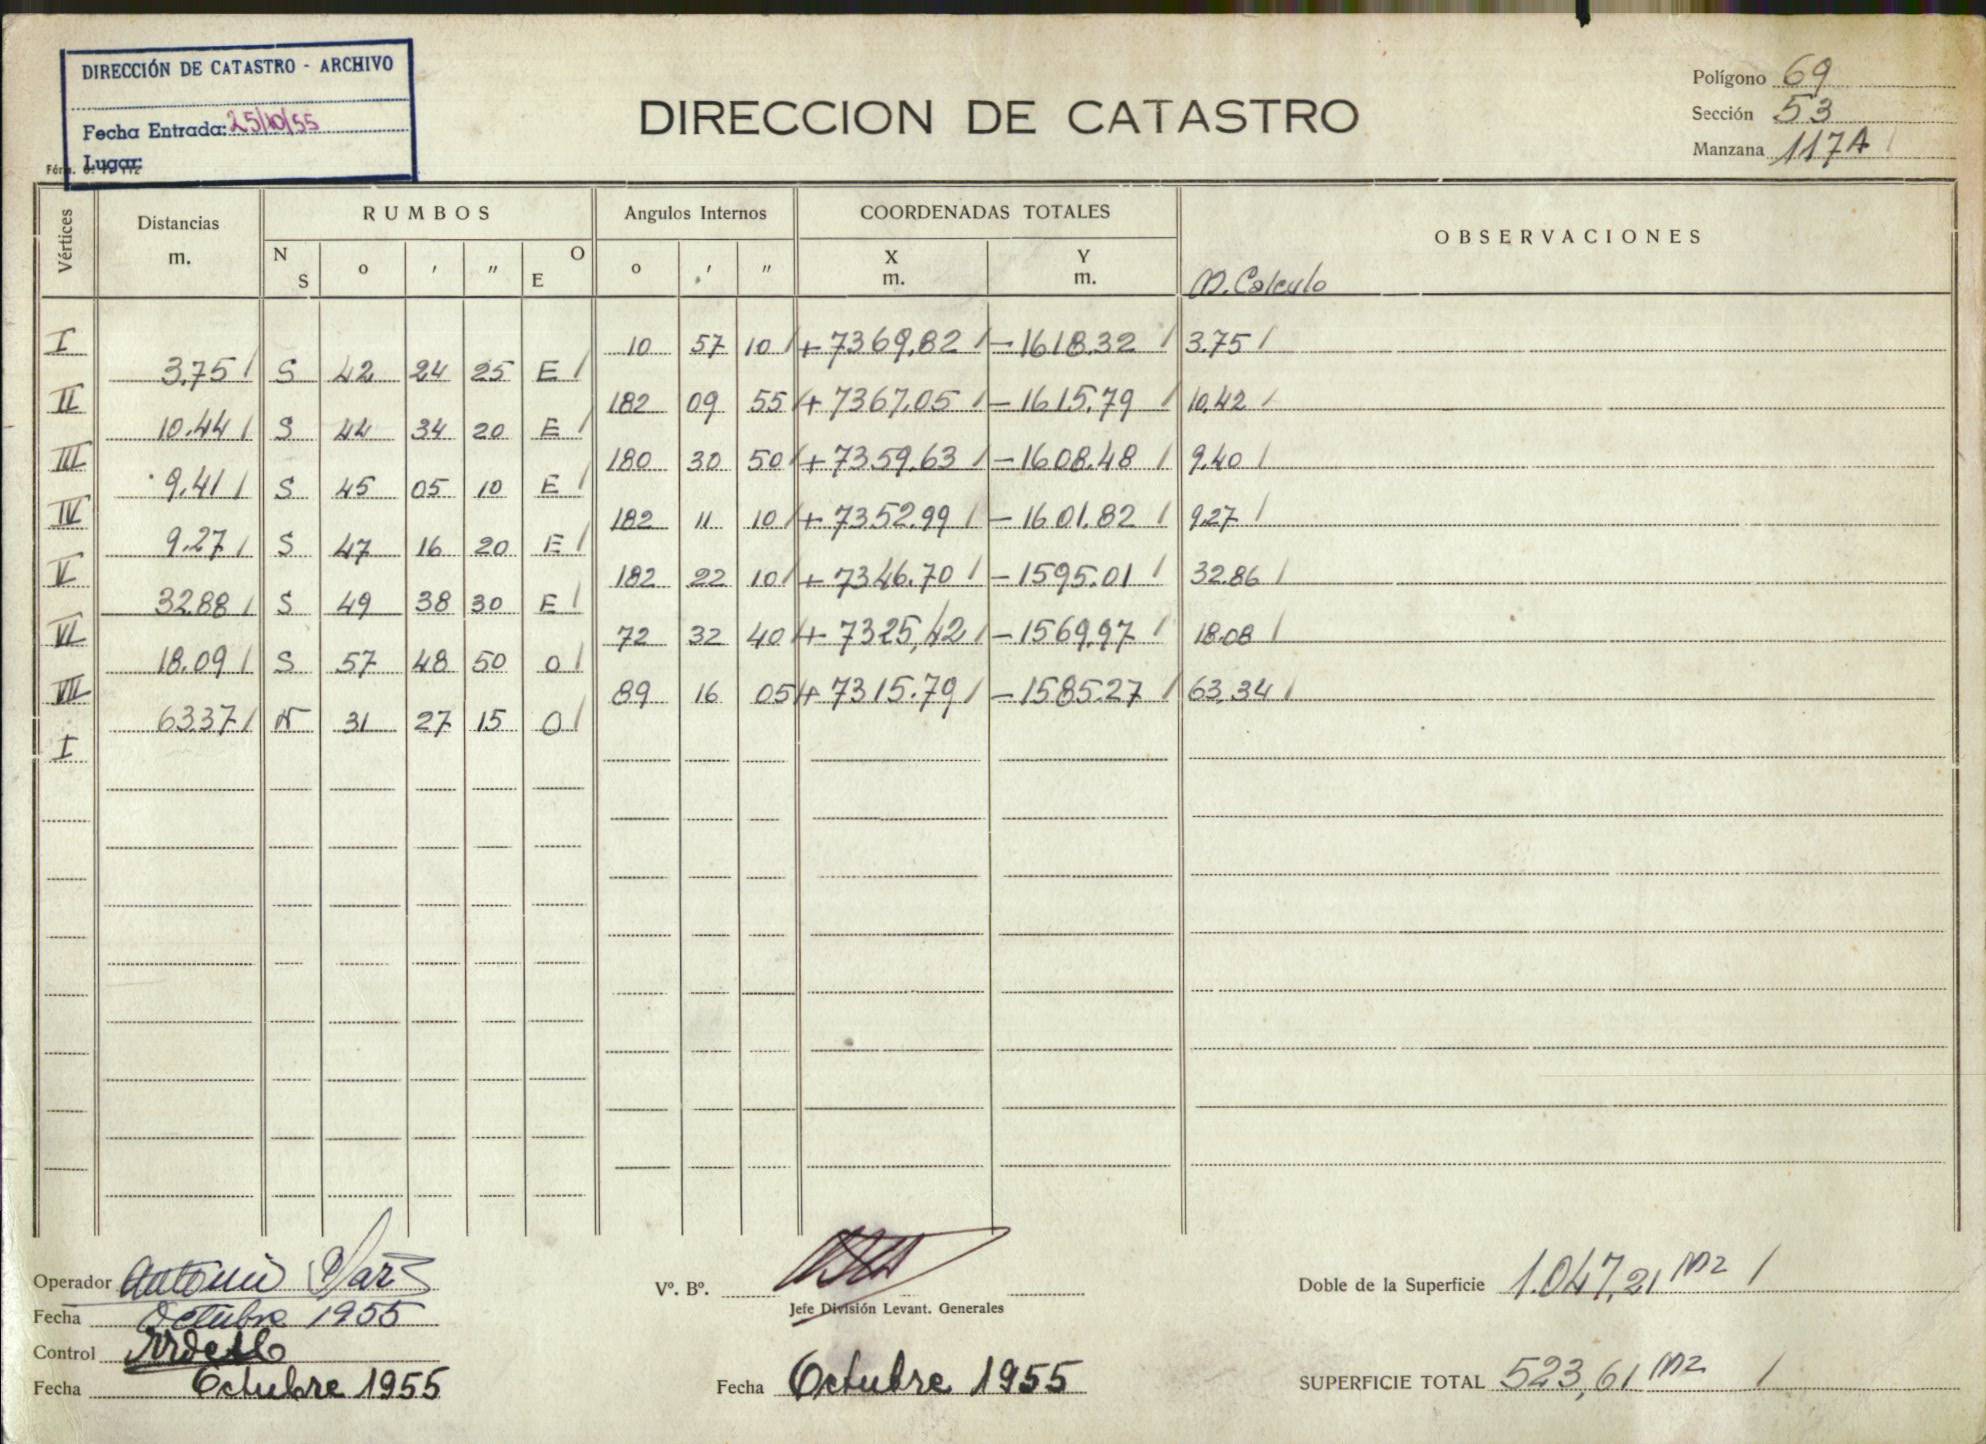 DIRECCIÓN DE CATASTRO - ARCHIVO
Fecha Entrada: 25/10/55
Lugar:
DIRECCION DE CATASTRO
Polígono 69
Sección 53
Manzana 117A
Vértices Distancias m. RUMBOS Angulos Internos COORDENADAS TOTALES OBSERVACIONES
N S o ' " O E o ' " X m. Y m. D. Calculo
I 10 57 10 + 7369,82 - 1618.32 3.75
3,75 S 42 24 25 E
II 182 09 55 + 7367,05 - 1615,79 10.42
10.44 S 44 34 20 E
III 180 30 50 + 7359,63 - 1608.48 9.40
9,41 S 45 05 10 E
IV 182 11 10 + 7352,99 - 1601.82 9.27
9.27 S 47 16 20 E
V 182 22 10 + 7346.70 - 1595.01 32.86
32.88 S 49 38 30 E
VI 72 32 40 + 7325,42 - 1569,97 18.08
18.09 S 57 48 50 O
VII 89 16 05 + 7315.79 - 1585.27 63,34
63.37 N 31 27 15 O
I
Operador Antonio
Fecha Octubre 1955
Control
Fecha Octubre 1955
Vº. Bº.
Jefe División Levant. Generales
Fecha Octubre 1955
Doble de la Superficie 1.047,21 m2
SUPERFICIE TOTAL 523,61 m2